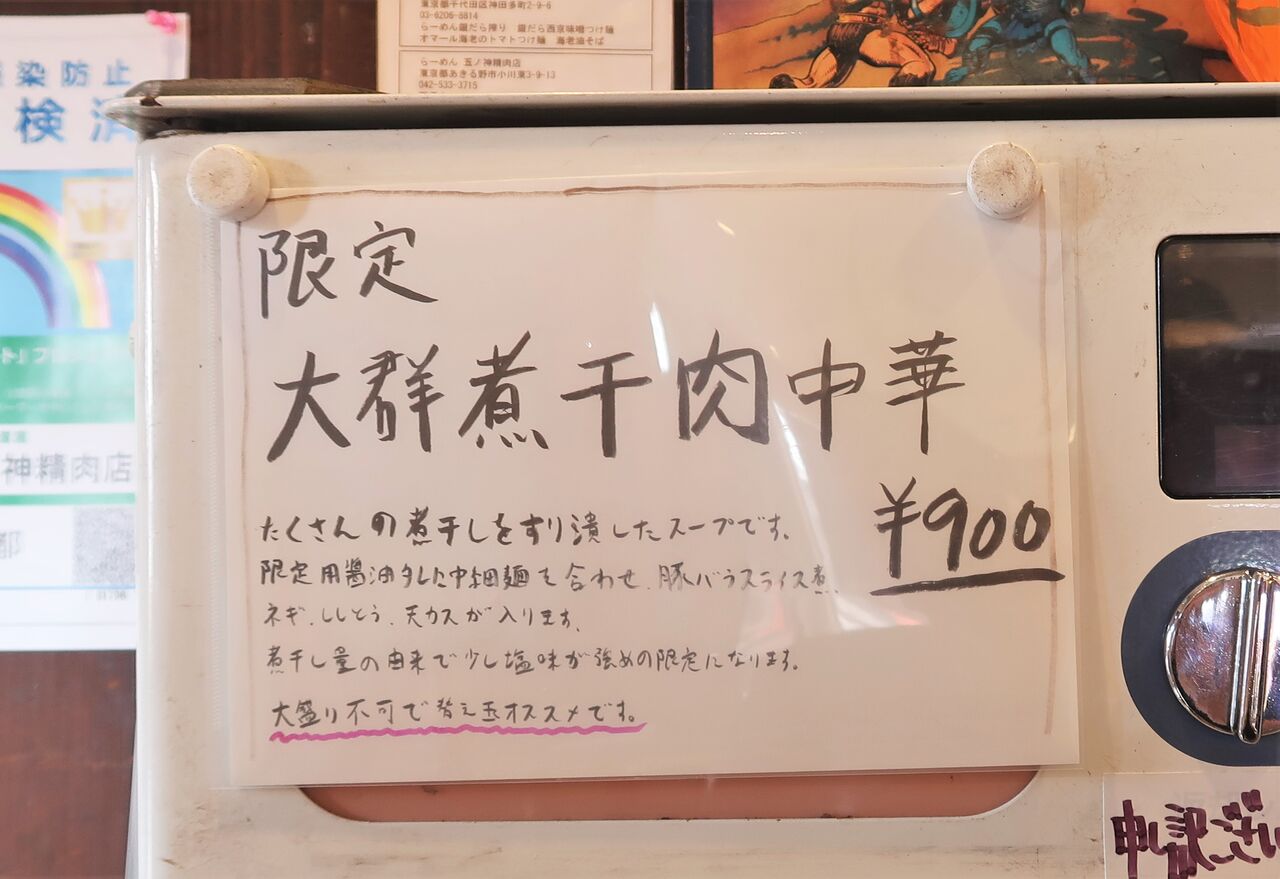 東京都千代田区神田多町2-9-6
03-6206-8814
オマール海老のトマトつけ麺 海老油そば
らーめん 五ノ神精肉店
東京都あきる野市小川東3-9-13
042-533-3715
染防止
検済
神精肉店
都
限定
大群煮干肉中華
¥900
たくさんの煮干しをすり潰したスープです。
限定用醤油タレに中細麺を合わせ、豚バラスライス煮、
ネギ、ししとう、天カスが入ります。
煮干し量の由来で少し塩味が強めの限定になります。
大盛り不可で替え玉オススメです。
申し訳ござい